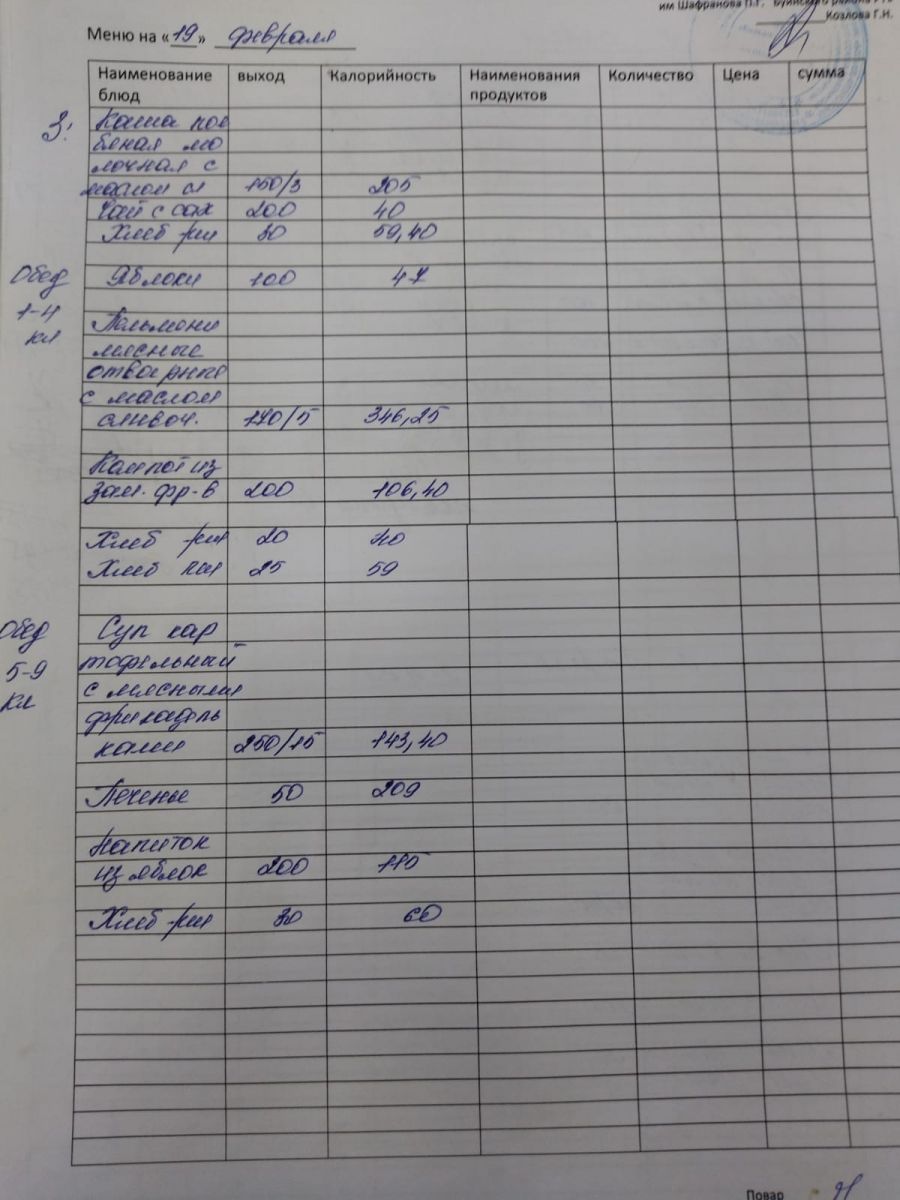 им Шафранова П.Г.
Козлова Г.Н.
Меню на «19» февраля
Наименование блюд выход Калорийность Наименования продуктов Количество Цена сумма
З:
Каша
молочная с
маслом сл 150/3 205
Чай с сах 200 40
Хлеб рж 30 59,40
Обед 1-4 кл
Яблоки 100 47
Пельмени
мясные
отварные
с маслом
сливоч. 170/5 346,25
Компот из
зам. фр-в 200 106,40
Хлеб рж 20 40
Хлеб пш 25 59
Обед 5-9 кл
Суп кар
тофельный
с мясными
фрикадель
ками 250/15 143,40
Печенье 50 209
Напиток
из яблок 200 115
Хлеб рж 30 60
Повар